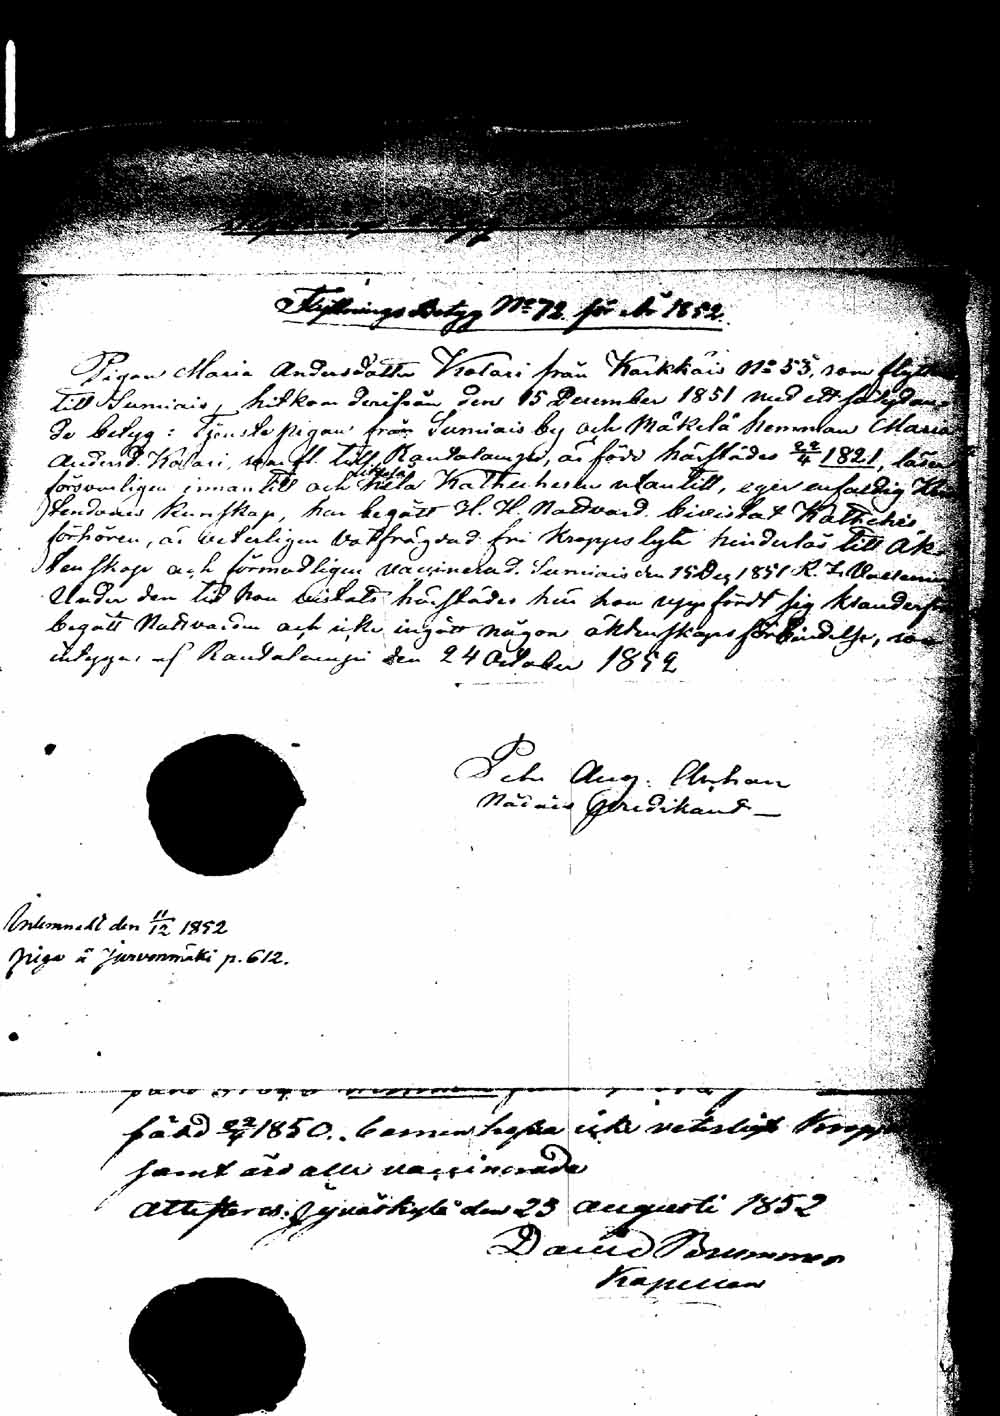 Flyttnings Betyg No 72. för år 1852.
Pigan Maria Andersdotter Kolari från Karkkais No 53, som flyttar
till Sumiais, hitkom derifrån den 15 December 1851 med ett sålydan-
de betyg: Tjenstepigan från Sumiais by och Mäkelä hemman Maria
Andersd. Kolari, som fl. till Rautalampi, är född härstädes 22/4 1821, läser
försvarligen innantill och hela Kathechesen utantill, eger enfaldig Kri-
stendoms kunskap, har begått H. H. Nattvard, bivistat Kathches
förhören, är veterligen oförfrågad fri kroppslyte hinderlös till äk-
tenskap och förmodligen vaccinerad. Sumiais den 15 Dec 1851 K. L.
Under den tid hon vistats härstädes har hon uppfördt sig
begått Nattvarden och icke ingått någon äktenskaps förbindelse, som
intygas af Rautalampi den 24 October 1852
Petr Aug.
Nådårs Predikant
Inlemnadt den 11/12 1852
piga å Jurvonmäki p. 612.
född 22/4 1850. Barnen hafva icke veterligt kropps
samt äro alla vaccinerade
Attesteras. Jyväskylä den 23 Augusti 1852
David Brummer
Kapellan